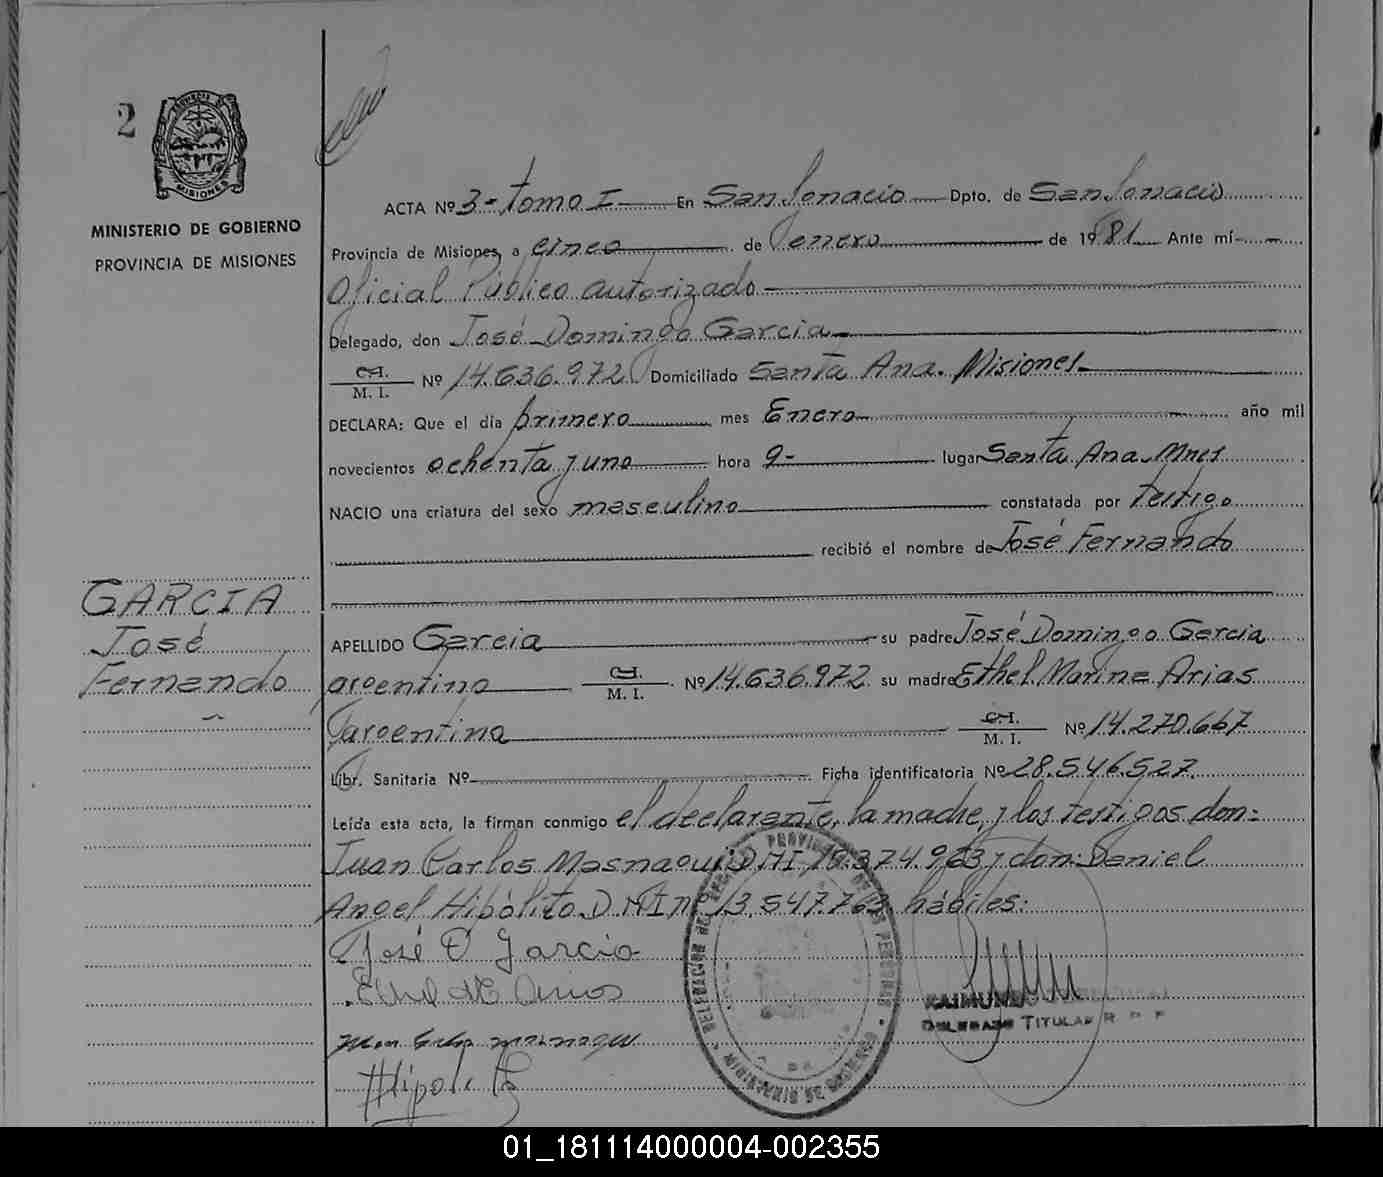 2
PROVINCIA DE
MISIONES
MINISTERIO DE GOBIERNO
PROVINCIA DE MISIONES
GARCIA
José
Fernando
ACTA Nº 3 - tomo I - En San Ignacio Dpto. de San Ignacio
Provincia de Misiones, a cinco de enero de 1981 Ante mí
Oficial Público autorizado
Delegado, don José Domingo Garcia
C.I. M. I. Nº 14.636.972 Domiciliado Santa Ana. Misiones
DECLARA: Que el día primero mes Enero año mil
novecientos ochenta y uno hora 9- lugar Santa Ana Mnes
NACIO una criatura del sexo masculino constatada por testigo
recibió el nombre de José Fernando
APELLIDO Garcia su padre José Domingo Garcia
argentino C.I. M. I. Nº 14.636.972 su madre Ethel Marina Arias
argentina C.I. M. I. Nº 14.270.667
Libr. Sanitaria Nº Ficha identificatoria Nº 28.546.527
Leída esta acta, la firman conmigo el declarante, la madre, y los testigos don:
Juan Carlos Masnaqui DMI y don: Daniel
Angel Hipólito DMI Nº 13.547.763 hábiles:
José D Garcia
Hipolito
DELEGADO TITULAR R P P
01_181114000004-002355